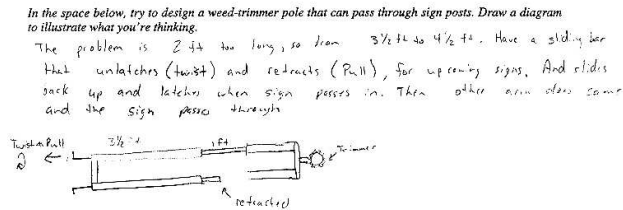 In the space below, try to design a weed-trimmer pole that can pass through sign posts. Draw a diagram
to illustrate what you're thinking.
The problem is 2 ft too long, so from 3½ ft to 4½ ft. Have a sliding bar
that unlatches (twist) and retracts (Pull), for upcoming signs. And slides
back up and latches when sign passes in. Then other arm does same
and the sign passes through
Twist & Pull 3½ ft 1 ft Trimmer
retracted